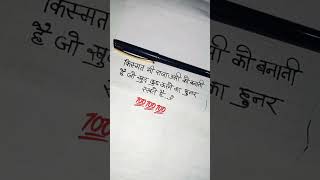 किस्मत भी राजा उसी को बनाती
है जो खुद कुछ करने का हुनर
रखते हैं..?
💯💯💯